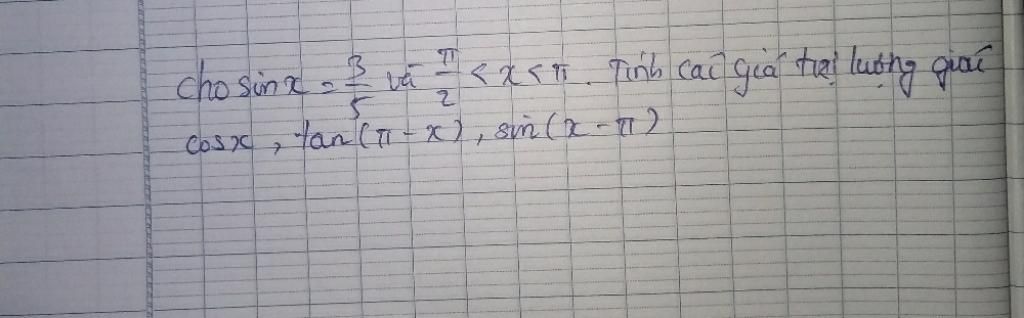 Cho sinx = 3/5 và π/2 < x < π. Tính các giá trị lượng giác
cosx, tan(π - x), sin(x - π)